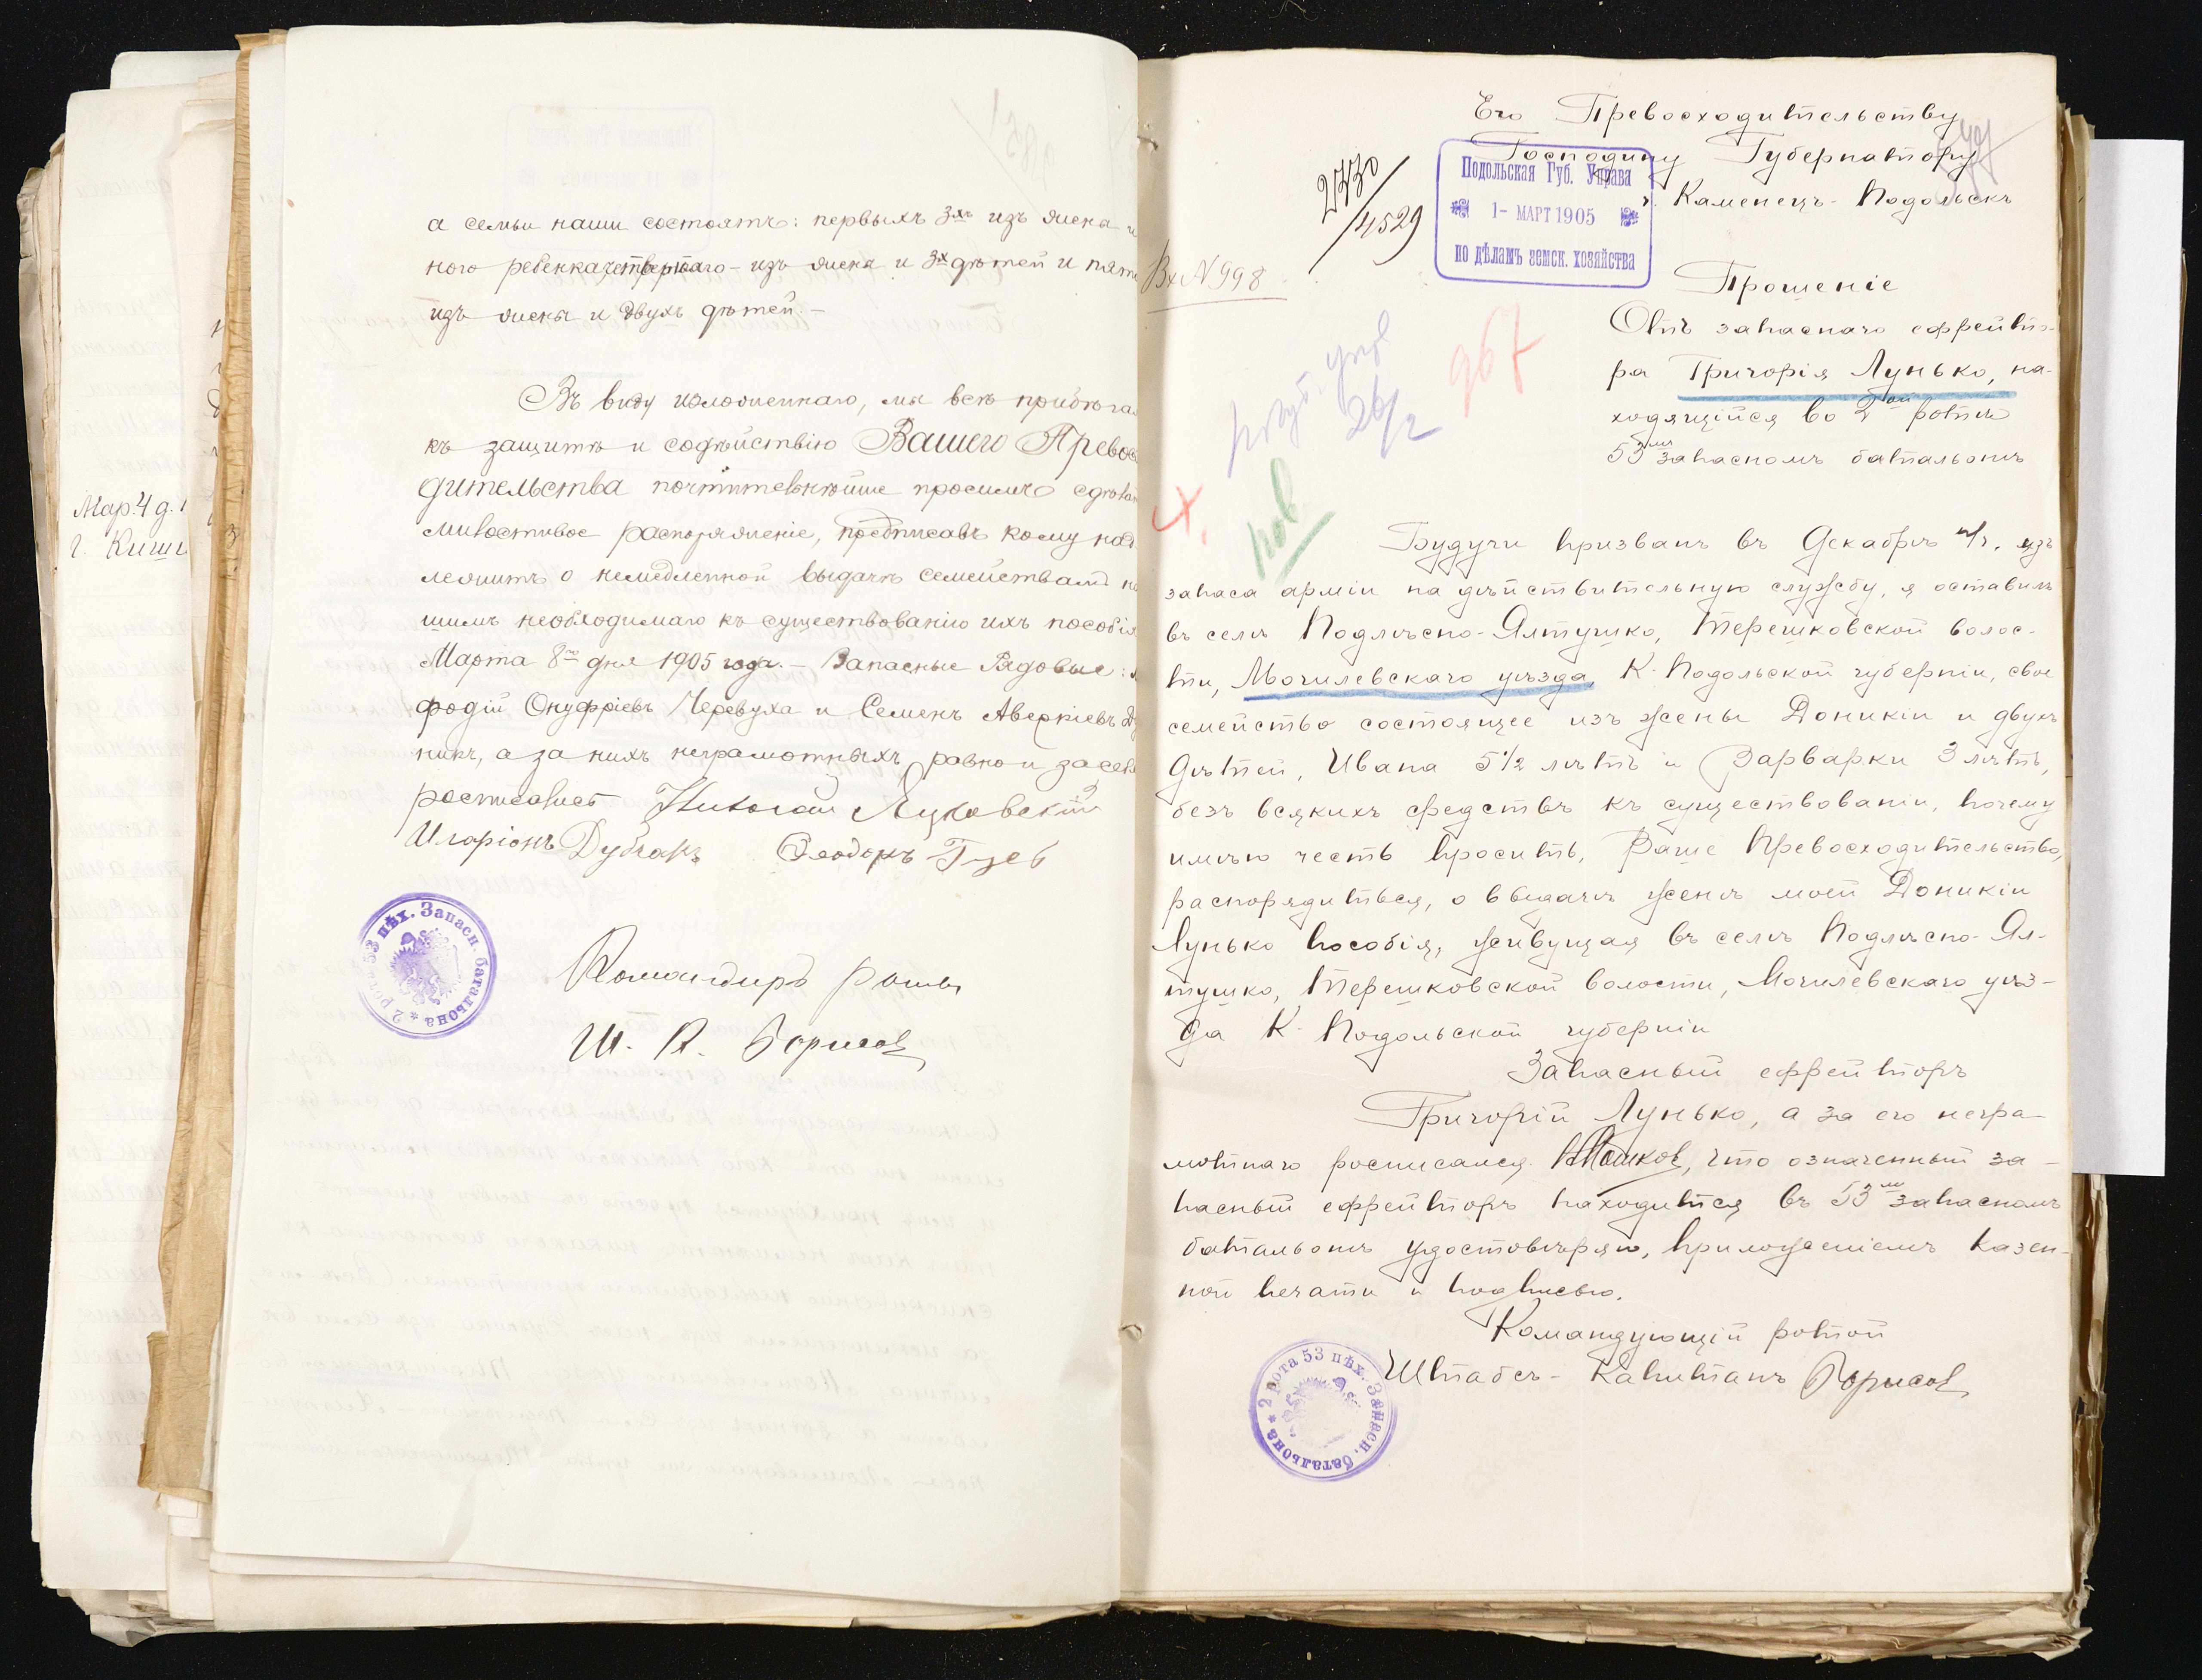 Мар. 4 д. 1
г. Киши
а семьи наши состоятъ: первыхъ 3хъ изъ жены и
ного ребенка, четвертаго - изъ жены и 3х дѣтей и пята
изъ жены и двухъ дѣтей. -
Въ виду изложеннаго, мы всѣ прибѣга
къ защитѣ и содѣйствію Вашего Превос
дительства почтительнѣйше просимъ сдѣлать
милостивое распоряженіе, предписавъ кому над
лежитъ о немедленной выдачѣ семействамъ на
шимъ необходимаго къ существованію ихъ пособія
Марта 8го дня 1905 года. - Запасные Рядовые:
фодій Онуфріевъ Черевуха и Семенъ Аверкіевъ
никъ, а за нихъ неграмотныхъ, равно и за себя
росписались Николай Яцковскій
Иларіонъ Дубчакъ Ѳеодоръ Гузев
2 рота 53 пѣх. Запасн. баталъона
Командиръ роты
Ш. К. Борисов
Его Превосходительству
Господину Губернатору
г. Каменецъ-Подольскъ
2730/4529
Подольская Губ. Управа
1- МАРТ 1905
по дѣламъ земск. хозяйства
Вх N 998
Прошеніе
Отъ запаснаго ефрейто-
ра Григорія Лунько, на-
ходящійся во 2ой ротѣ
53мъ запасномъ батальонѣ
26/2
967
Будучи призванъ въ Декабрѣ м/г. изъ
запаса арміи на дѣйствительную службу, я оставилъ
въ селѣ Подлѣсно-Ялтушко, Терешковской волос-
ти, Могилевскаго уѣзда, К-Подольской губерніи, свое
семейство состоящее изъ жены Доникіи и двухъ
дѣтей, Ивана 5 1/2 лѣтъ и Варварки 3 лѣтъ,
безъ всякихъ средствъ къ существованіи, почему
имѣю честь просить, Ваше Превосходительство,
распорядиться, о выдачѣ женѣ моей Доникіи
Лунько пособія, живущая въ селѣ Подлѣсно-Ял-
тушко, Терешковской волости, Могилевскаго уѣз-
да К-Подольской губерніи
Запасный ефрейторъ
Григорій Лунько, а за его негра-
мотнаго росписался, что означенный за-
пасный ефрейторъ находится въ 53мъ запасномъ
батальонѣ удостовѣряю, приложеніемъ казен-
ной печати и подписью.
Командующій ротой
Штабсъ-Капитанъ Борисов
2 рота 53 пѣх. Запасн. баталъона